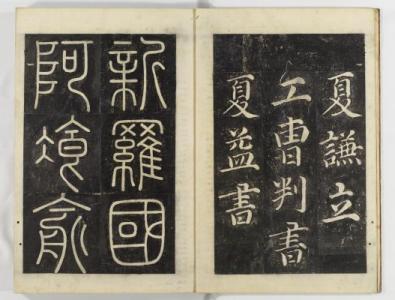 夏謙立
工曹判書
夏益書
新羅國
阿
兪